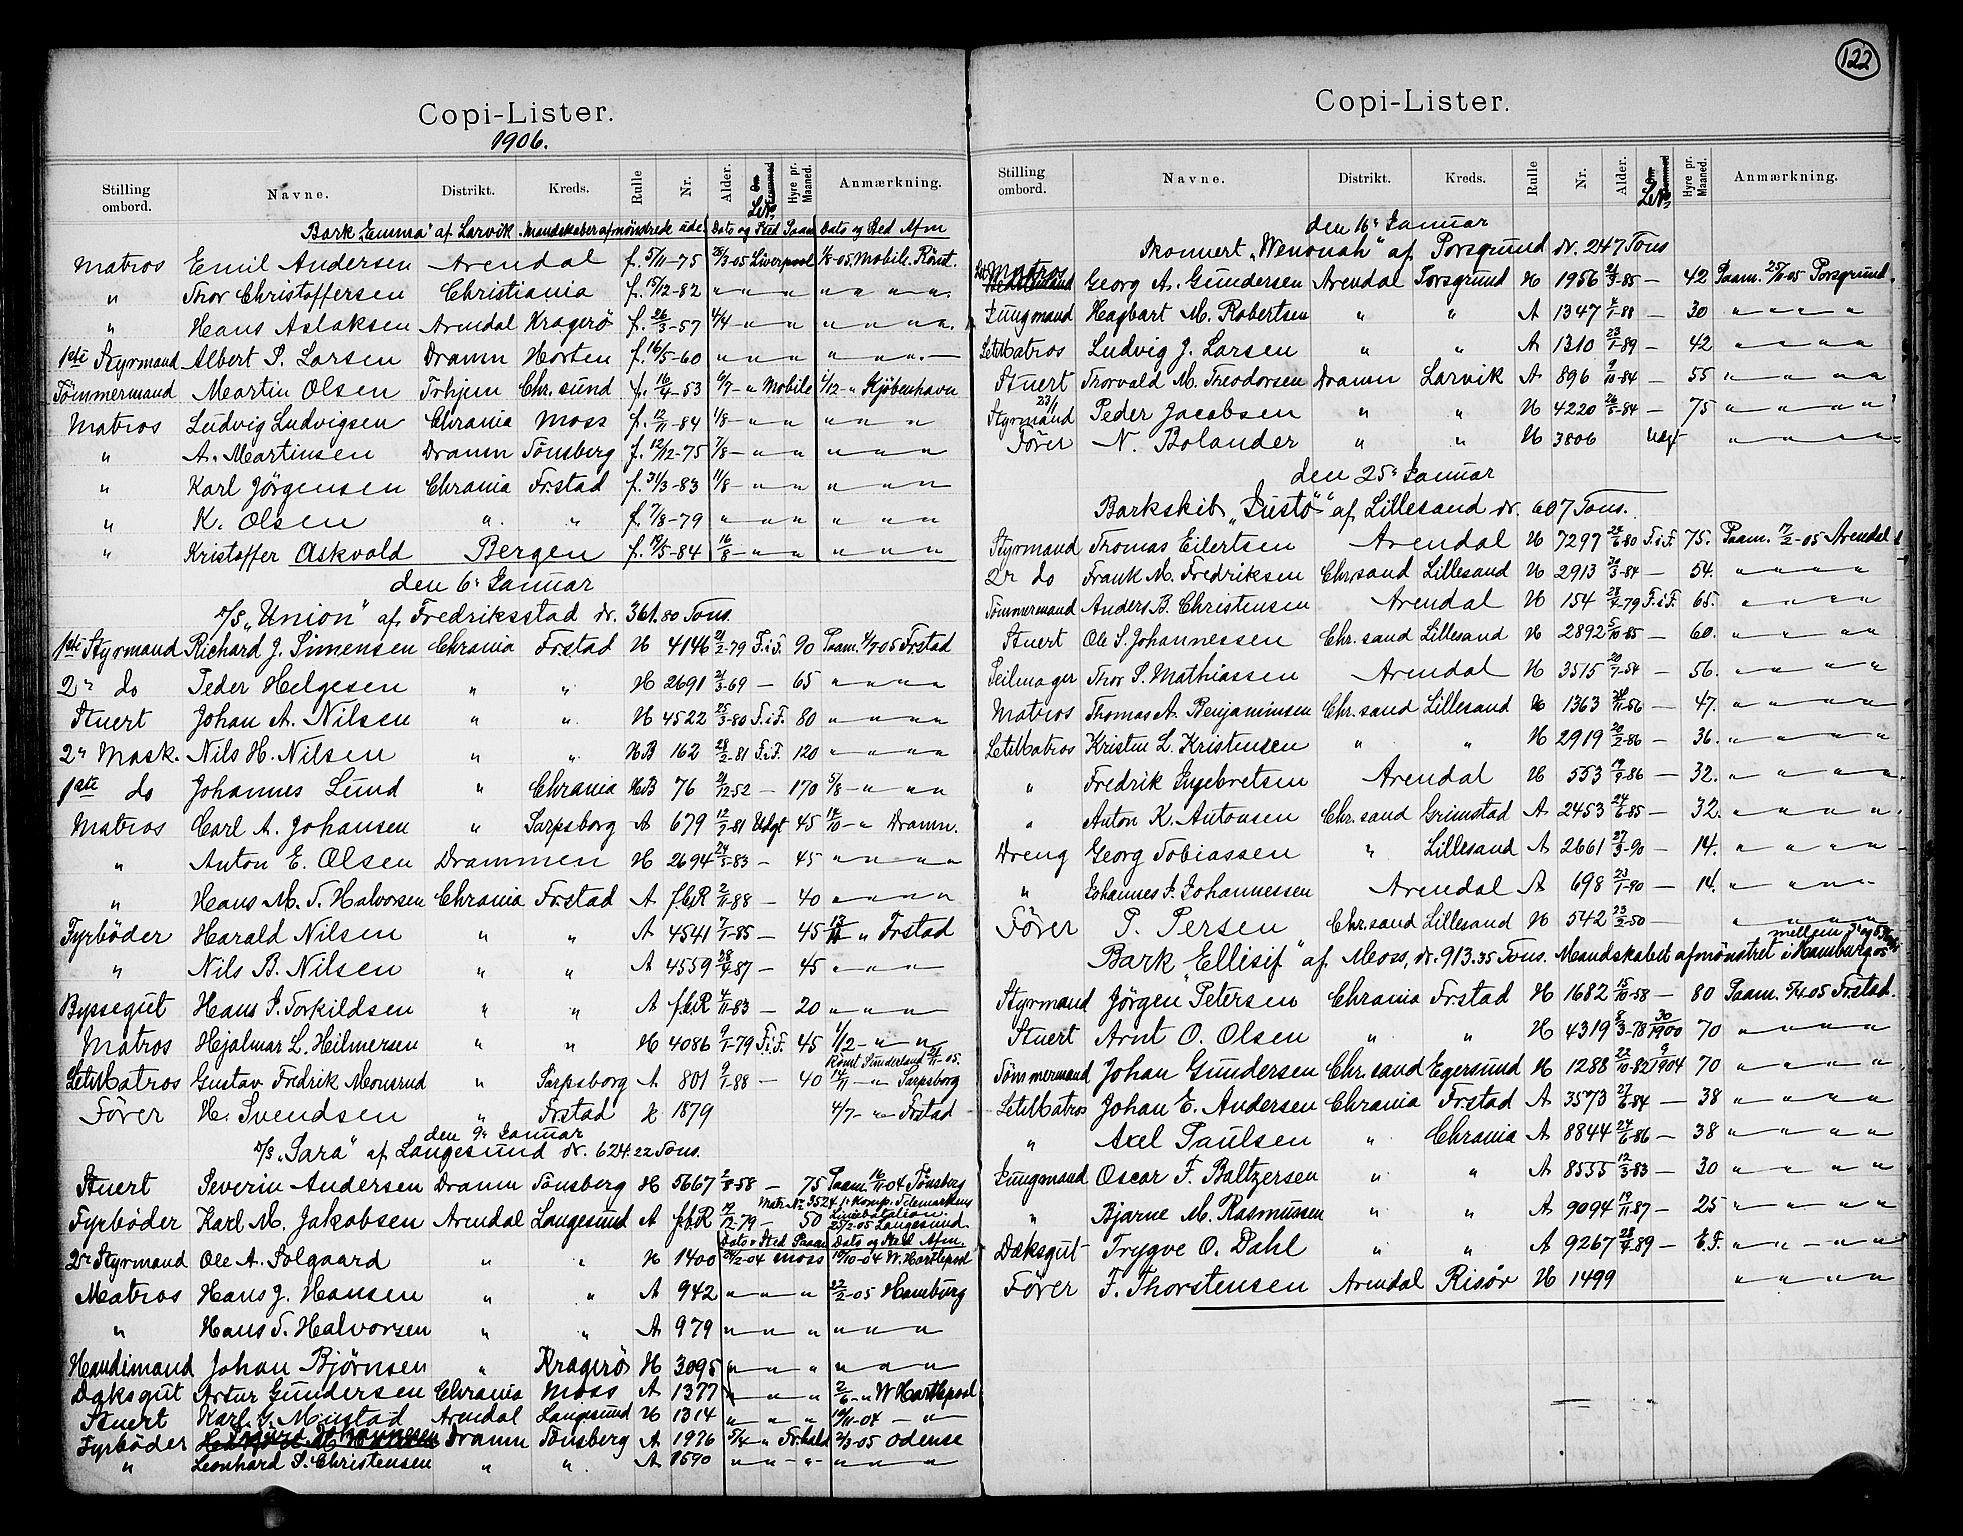 Copi-Lister.
1906.
Stilling ombord. Navne. Distrikt. Kreds. Rulle Nr. Alder. Hyre pr. Maaned. Anmærkning.
Bark „Emma" af Larvik. Mandskaber afmönstrede ude. Dato og Sted Paam Dato og Sted Afm
Matros Emil Andersen Arendal f. 5/11-75 Liverpool 1/8-05. Mobile. Römt.
" Thor Christoffersen Christiania f. 15/12-82 " " " " " " "
" Hans Aslaksen Arendal Kragerö f. 26/3-57 4/4 - " " " " " "
1ste Styrmand Albert S. Larsen Dramn Horten f. 16/5-60 " " " " " " "
Tömmermand Martin Olsen Trhjem Chr. sund f. 16/4-53 6/7- " Mobile 1/12- " Kjöbenhavn
Matros Ludvig Ludvigsen Chrania Moss f. 12/11-84 1/8- " " " " "
" A. Martinsen Dramn Tönsberg f. 12/12-75 7/8- " " " " "
" Karl Jörgensen Chrania Fr.stad f. 31/3-83 11/8- " " " " "
" K. Olsen " " f. 7/8-79 " " " " " "
" Kristoffer Askvold Bergen f. 19/5-84 16/8- " " " " "
den 6te Januar
D/S „Union" af Fredriksstad dr. 361.80 Tons.
1ste Styrmand Richard J. Simensen Chrania Frstad H 4146 21/2-79 F.i.F. 90 Paam. 4/7-05 Frstad
2n do Peder Helgesen " " H 2691 21/3-69 - 65 " " " "
Stuert Johan A. Nilsen " " H 4522 25/3-80 F.i.F. 80 " " " "
2n Mask. Nils H. Nilsen " " H.B 162 28/2-81 F.i.F. 120 " " " "
1ste do Johannes Lund " Chrania H.B 76 21/12-52 - 170 5/8- " " "
Matros Carl A. Johansen " Sarpsborg A 679 12/7-81 Udgt 45 14/10- " Dramn.
" Anton E. Olsen Drammen H 2694 24/5-83 - 45 " " " "
" Hans M. T. Halvorsen Chrania Frstad A f.b.R 2/11-88 - 40 " " " "
Fyrböder Harald Nilsen " " A 4541 7/1-85 - 45 " Frstad
" Nils B. Nilsen " " A 4559 28/9-87 - 45 " " "
Byssegut Hans J. Torkildsen " " A f.b.R 4/11-83 - 20 " " "
Matros Hjalmar L. Hilmersen " " H 4086 9/1-79 F.i.F. 45 1/12- " "
Römt Sunderland -05.
LetMatros Gustav Fredrik Monsrud " Sarpsborg A 801 9/1-88 - 40 14/11- " Sarpsborg
Förer H. Svendsen " Frstad H 1879 4/7- " Frstad
den 9de Januar
D/S „Sara" af Langesund dr. 624.22 Tons.
Stuert Severin Andersen Dramn Tönsberg H 5667 2/8-58 - 75 Paam. 16/11-04 Tönsberg
Matr. Nr. 3524 f. Komp. Telemarkens Linebatalion.
Fyrböder Karl M. Jakobsen Arendal Langesund A f.b.R 17/12-79 - 50 25/2-05 Langesund
Dato o Sted Paam Dato og Sted Afm.
2n Styrmand Ole A. Solgaard " " H 1400 24/2-04 Moss 19/10-04 W. Hartlepool
Matros Hans J. Hansen " " A 942 " " " 22/2-05 Hamburg
" Hans T. Halvorsen " " A 979 " " " " " "
Haandimand Johan Bjørnsen " Kragerö H 3095 " " " " " "
Dæksgut Artur Gundersen Chrania Moss A 1377 " " " 2/6- " W Hartlepool
Stuert Karl G. Mustad Arendal Langesund H 1314 " " " 19/11-04 - "
Fyrböder Johannesen Dramn Tönsberg A 1976 5/4 " Fr.hald 2/3-05 Odense
" Leonhard S. Christensen " " A 1590 " " - " " " "
122
Copi-Lister.
Stilling ombord. Navne. Distrikt. Kreds. Rulle Nr. Alder. Hyre pr. Maaned. Anmærkning.
den 16de Januar
Skonnert „Wenonah" af Porsgrund dr. 247 Tons
Let Matros Georg A. Gundersen Arendal Porsgrund H 1956 21/9-85 - 42 Paam. 25/11-05 Porsgrund.
Jungmand Hagbart M. Robertsen " " A 1347 4/1-88 - 30 " " " "
LetMatros Ludvig J. Larsen " " A 1310 23/1-89 - 42 " " " "
Stuert Thorvald M. Theodorsen Dramn Larvik A 896 9/10-84 - 55 " " " "
23/1
Styrmand Peder Jacobsen " " H 4220 26/5-84 - 75 " " " "
Förer N. Bolander " " H 3806 Udgt " " " "
den 25de Januar
Barkskib „Justö" af Lillesand dr. 607 Tons.
Styrmand Thomas Eilertsen Arendal H 7297 24/6-80 F.i.F. 75. Paam. 17/2-05 Arendal
2n do Frank M. Fredriksen Chr.sand Lillesand H 2913 20/3-84 - 54. " " " "
Tömmermand Anders B. Christensen Arendal H 154 28/9-79 F.i.F. 65. " " " "
Stuert Ole S. Johannessen Chr. sand Lillesand H 2892 5/10-85 - 60. " " " "
Seilmager Thor S. Mathiassen Arendal H 3515 20/7-54 - 56. " " " "
Matros Thomas A. Benjaminsen Chr. sand Lillesand H 1363 24/11-56 - 47. " " " "
LetMatros Kristen L. Kristensen " " H 2919 20/2-86 - 36. " " " "
" Fredrik Ingebretsen Arendal H 553 19/9-86 - 32. " " " "
" Anton K. Antonsen Chr. sand Grimstad A 2453 24/6-85 - 32. " " " "
Dreng Georg Tobiassen " Lillesand A 2661 27/3-90 - 14. " " " "
" Johannes J. Johannessen Arendal A 698 23/1-90 - 14. " " " "
Förer P. Persen Chr.sand Lillesand H 542 23/2-50 " " " "
Bark „Ellisif" af Moss, dr. 913.35 Tons. Mandskabet afmönstret i Hamburg mellem
Styrmand Jörgen Petersen Chrania Frstad H 1682 15/10-58 - 80 Paam. 5/4-05 Frstad.
Stuert Arnt O. Olsen " " H 4319 8/3-78 30/1900 70 " " " "
Tömmermand Johan Gundersen Chr. sand Egersund H 1288 22/10-82 9/1904 70 " " " "
LetMatros Johan E. Andersen Chrania Frstad A 3573 27/6-84 - 38 " " " "
" Axel Paulsen " Chrania A 8844 24/6-86 - 38 " " " "
Jungmand Oscar F. Baltzersen " " A 8555 12/3-83 - 30 " " " "
" Bjarne M. Rasmussen " " A 9094 19/11-87 - 25 " " " "
Dæksgut Trygve O. Dahl " " A 9267 28/9-89 - E.F. " " " "
Förer F. Thorstensen Arendal Risør H 1499 " " " "